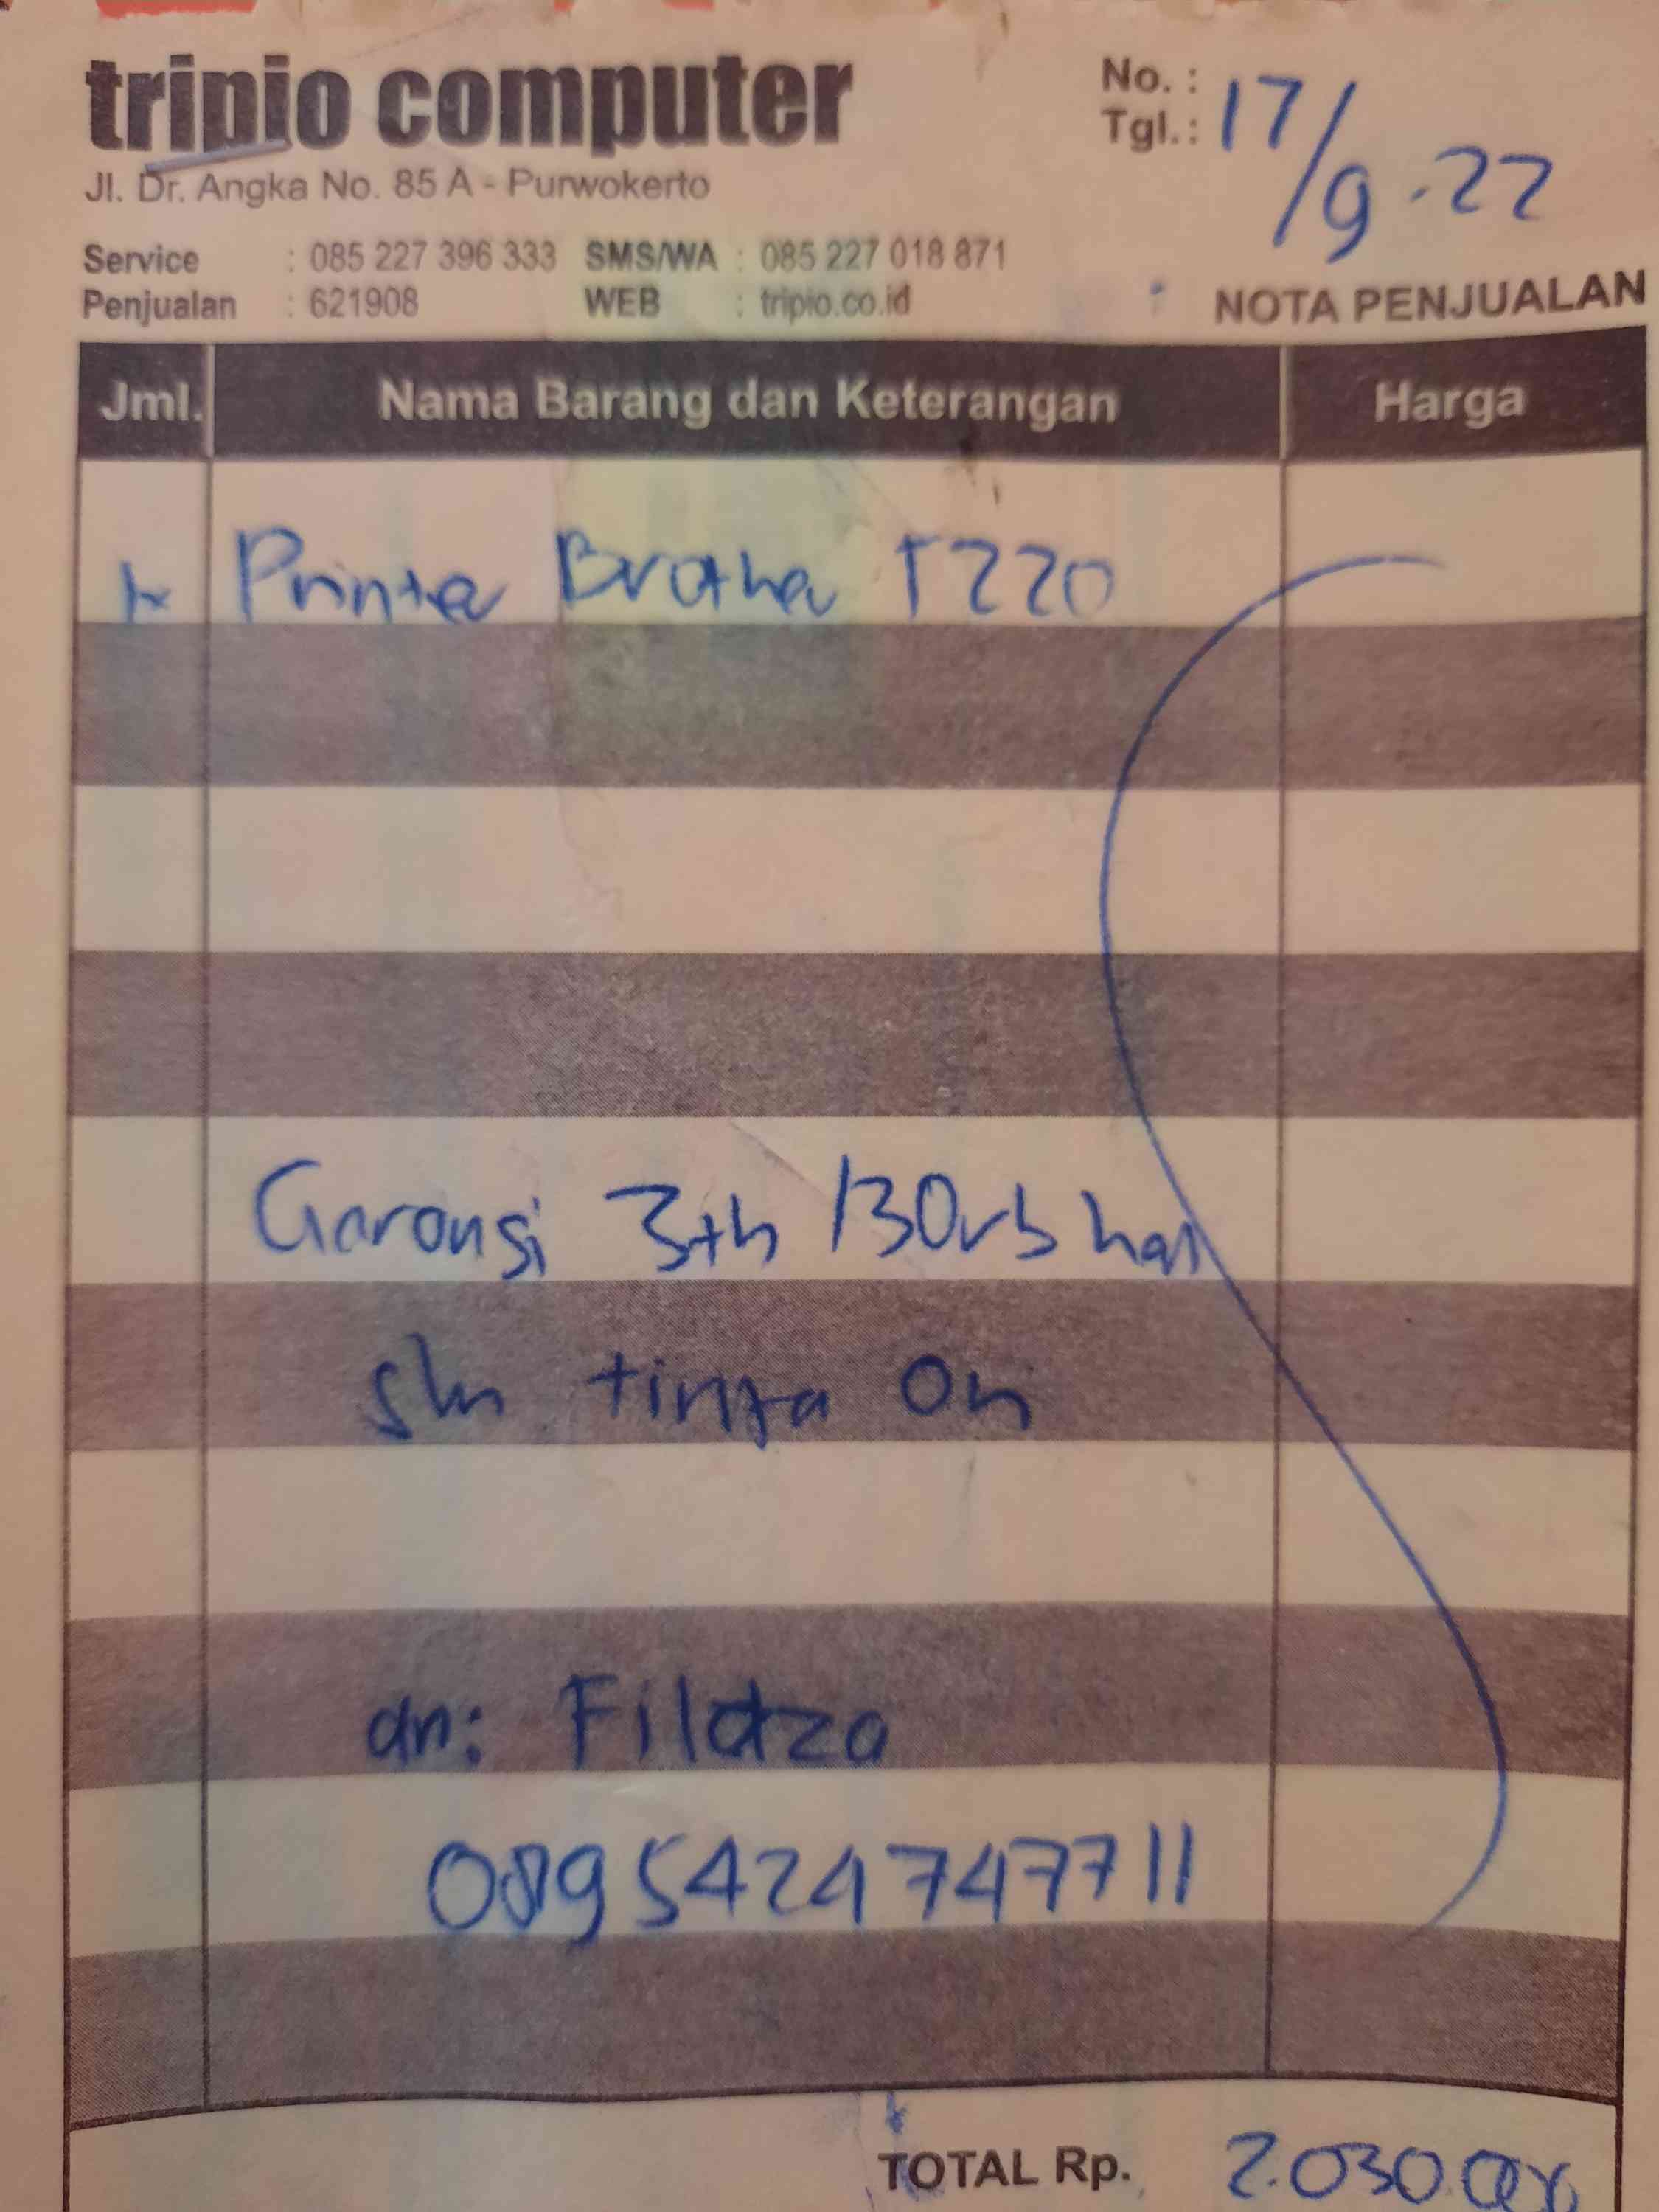 tripio computer
Jl. Dr. Angka No. 85 A - Purwokerto
No. :
Tgl. : 17/9-22
Service : 085 227 396 333 SMS/WA : 085 227 018 871
Penjualan : 621908 WEB : tripio.co.id
NOTA PENJUALAN
Jml. Nama Barang dan Keterangan Harga
Printer Brother T220
Garansi 3th /30rb hal
tinta On
an: Filatza
0895424747711
TOTAL Rp. 2.030.000